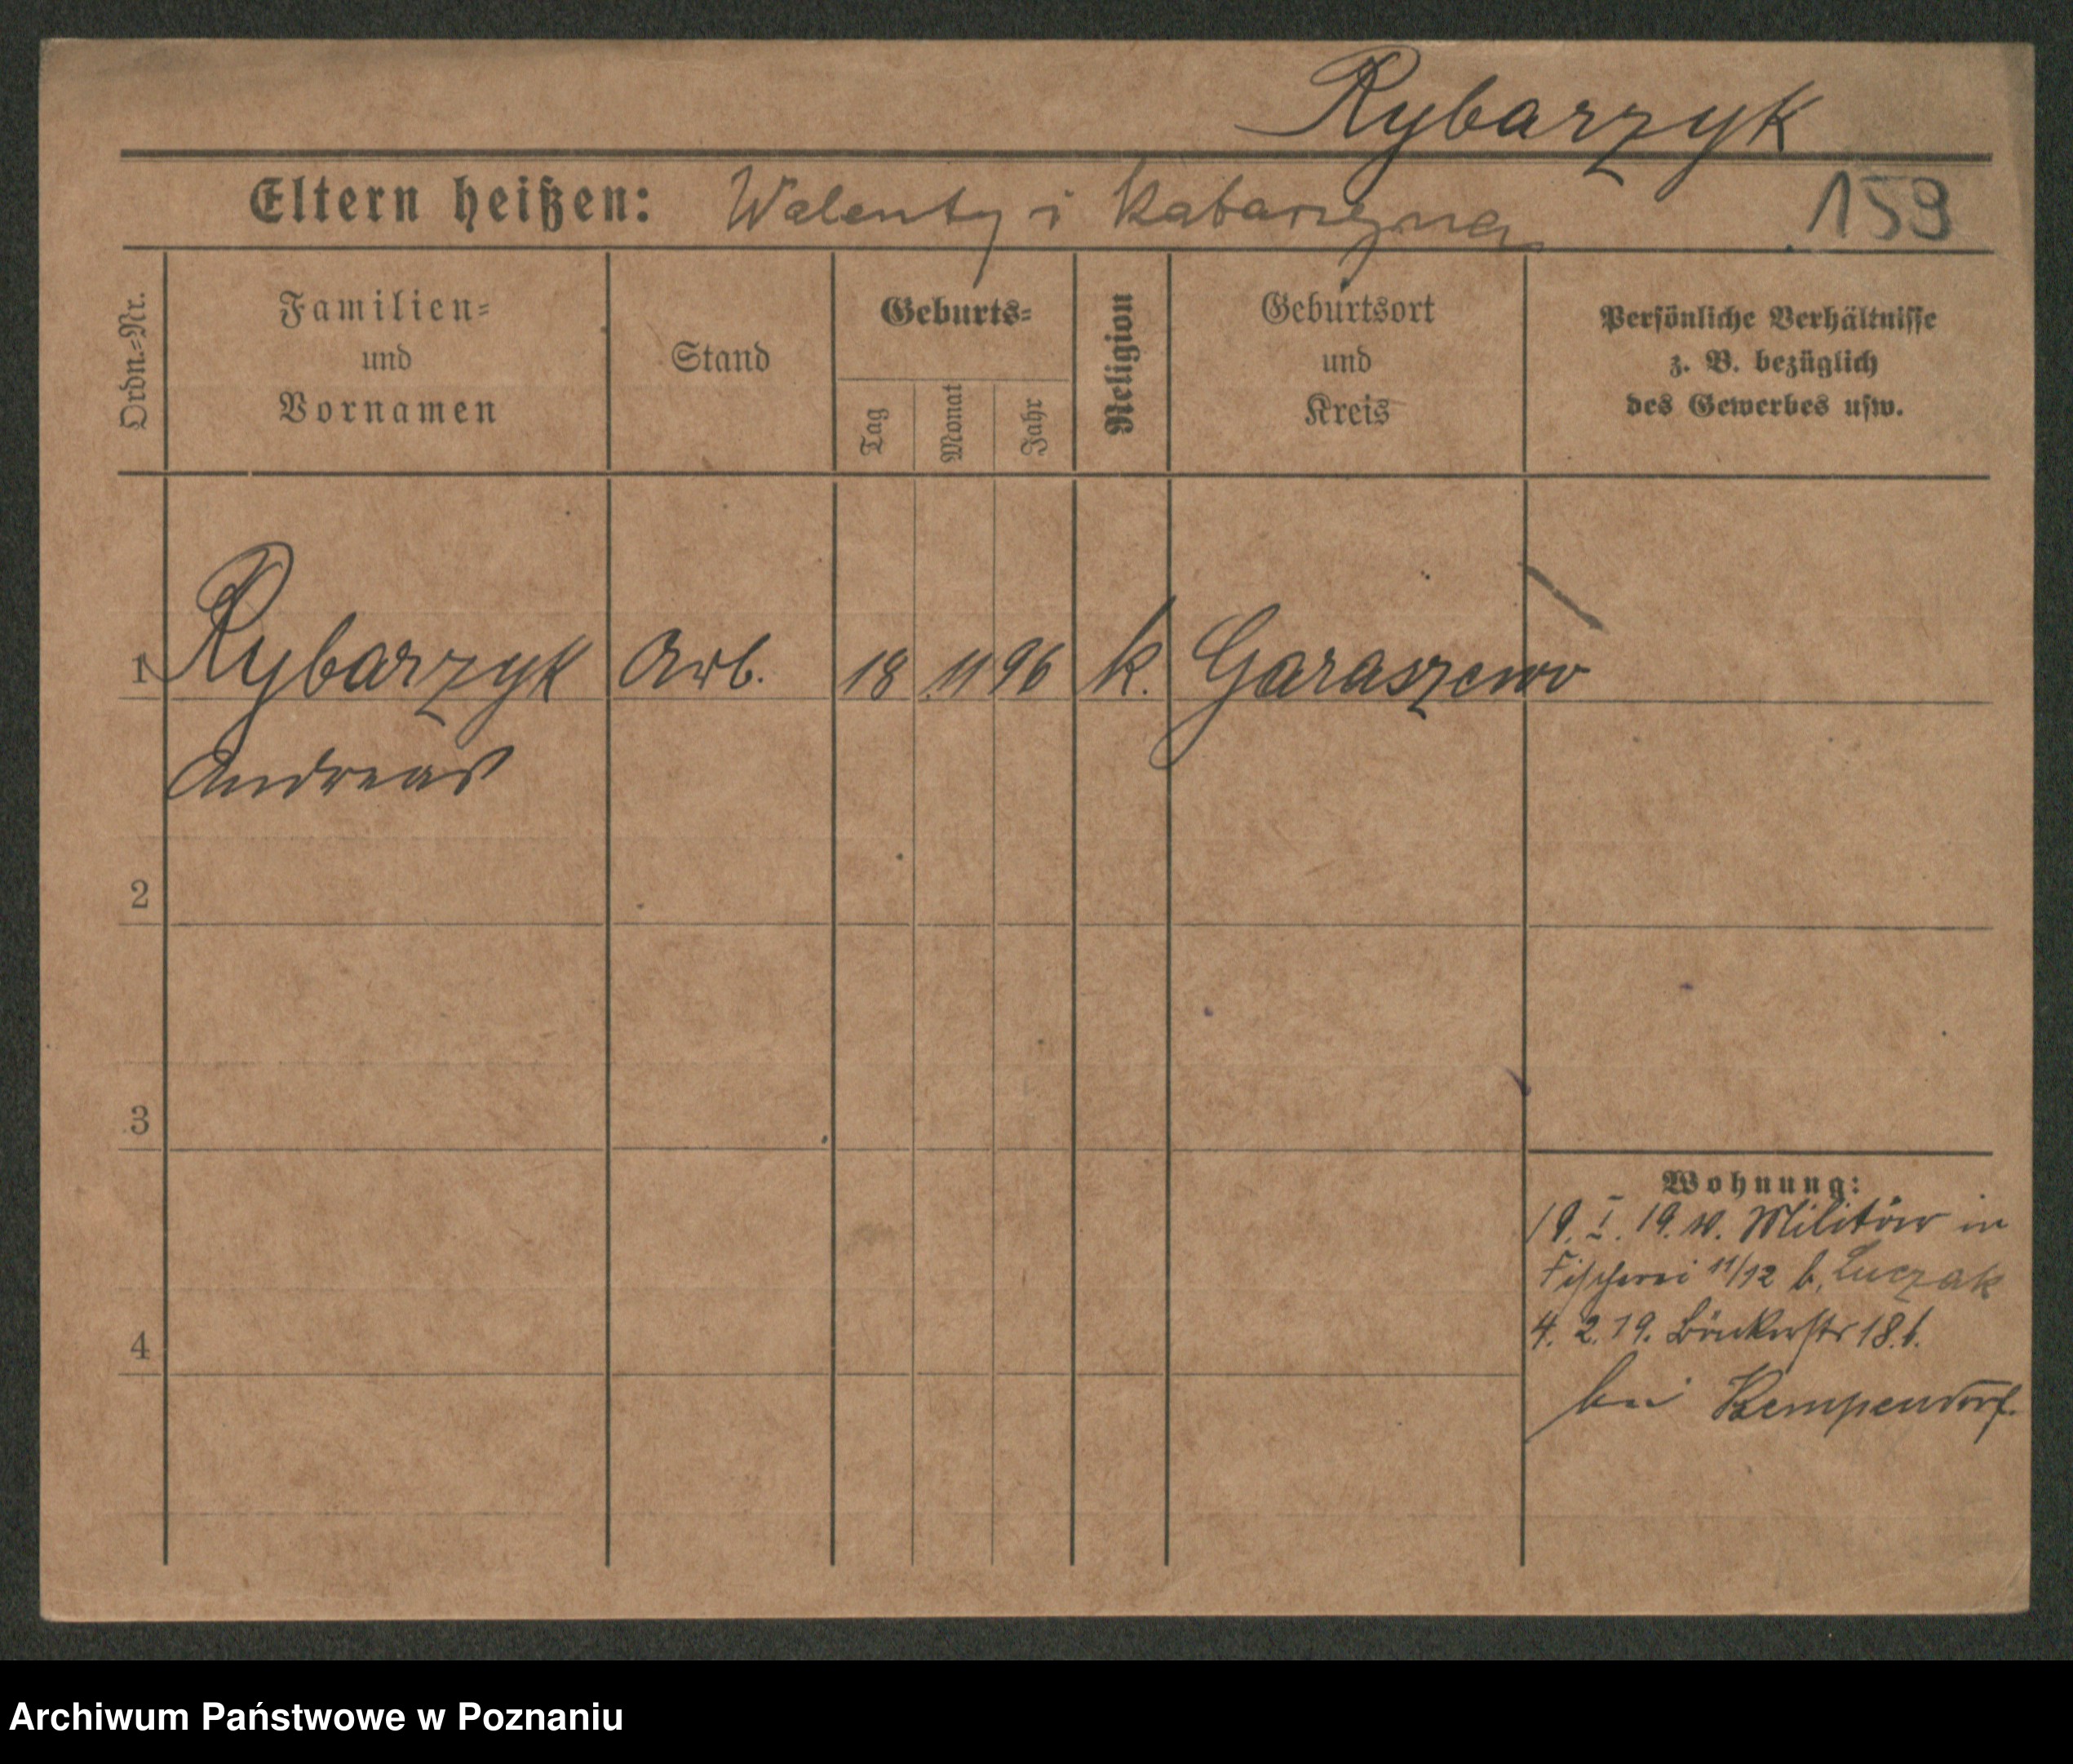 Rybarzyk
Eltern heißen: Walenty i Katarzyna 159
Ordn.-Nr.
Familien-
und
Vornamen
Stand
Geburts-
Tag
Monat
Jahr
Religion
Geburtsort
und
Kreis
Persönliche Verhältnisse
z. B. bezüglich
des Gewerbes usw.
1 Rybarzyk Arb. 18 11 96 k. Garaszewo
Andreas
2
3
4
Wohnung:
19. I. 19. v. Militär in
Fischerei 11/12 b. Luczak
4. 2. 19. 18.
bei Kempendorf.
Archiwum Państwowe w Poznaniu